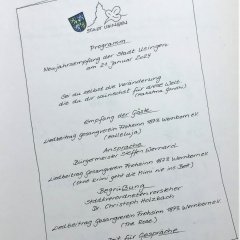 STADT USINGEN
Programm
Neujahrsempfang der Stadt Usingen
am 21. Januar 2024
Sei du selbst die Veränderung
die du dir wünschst für diese Welt
(Mahatma Ghandi)
Empfang der Gäste
Liedbeitrag Gesangverein Frohsinn 1873 Wernborn e.V.
(Halleluja)
Ansprache
Bürgermeister Steffen Wernard
Liedbeitrag Gesangverein Frohsinn 1873 Wernborn e.V.
(Ohne Krimi geht die Mimi nie ins Bett)
Begrüßung
Stadtverordnetenvorsteher
Dr. Christoph Holzbach
Liedbeitrag Gesangverein Frohsinn 1873 Wernborn e.V.
(The Rose)
Zeit für Gespräche